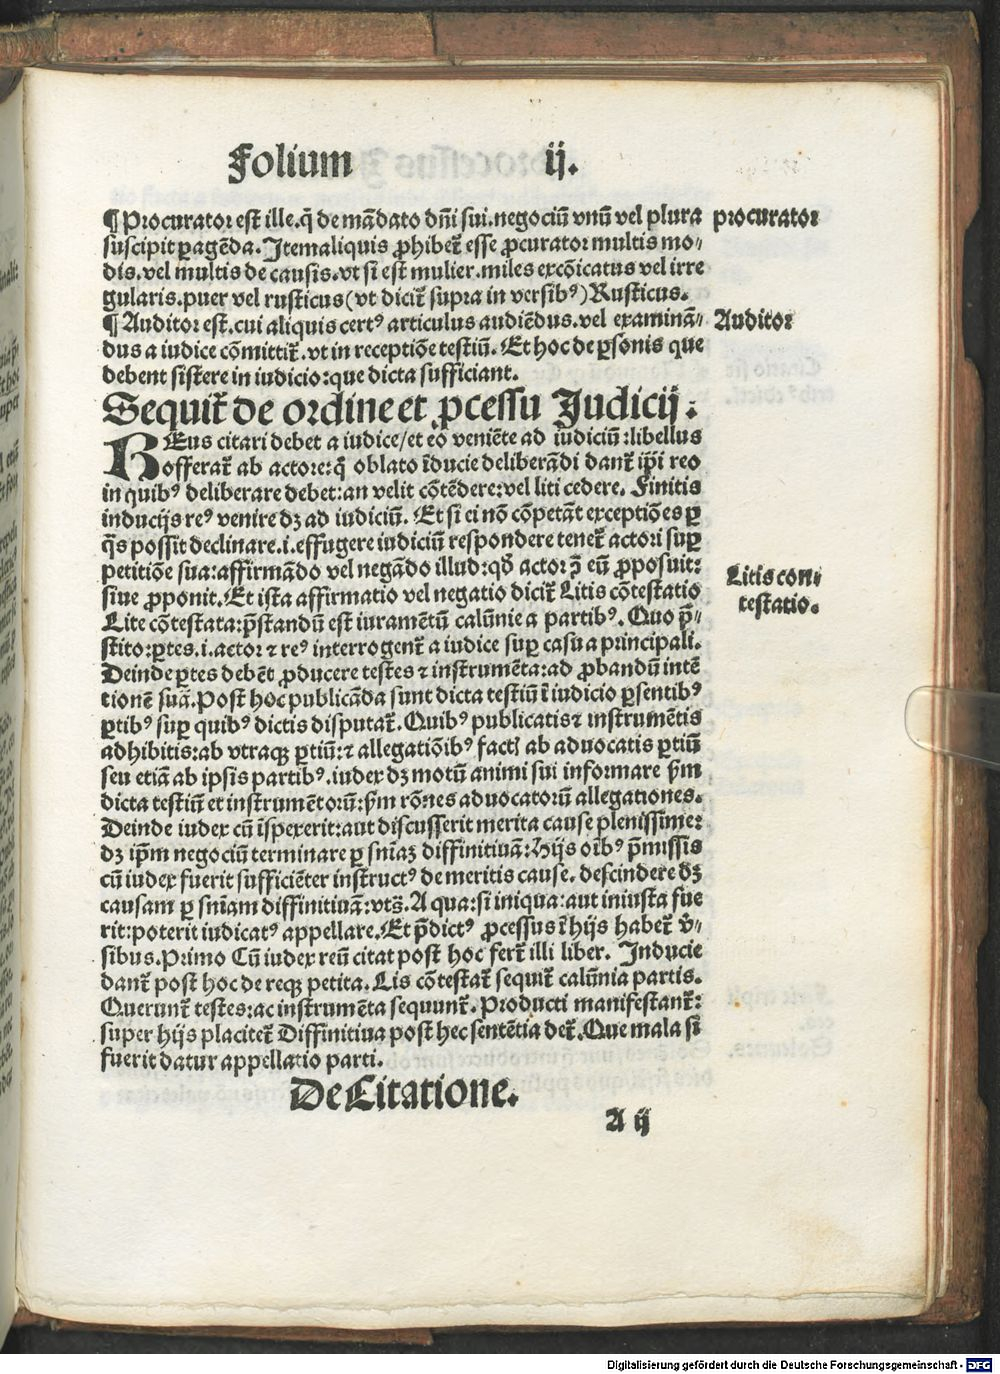 Folium ij.
¶ Procurator est ille. q̄ de mādato dn̄i sui. negociū vnū vel plura
procurator
suscipit ꝑagēda. Itemaliquis ꝓhibet̄ esse ꝓcurator multis mo⸗
dis. vel multis de causis. vt si est mulier. miles excōicatus vel irre
gularis. puer vel rusticus (vt dicit̄ supra in versibꝰ) Rusticus.
¶ Auditor est. cui aliquis certꝰ articulus audiēdus. vel examinā⸗
Auditor
dus a iudice cōmittit̄. vt in receptiōe testiū. Et hoc de ꝑsonis que
debent sistere in iudicio: que dicta sufficiant.
Sequit̄ de ordine et ꝓcessu Judicij:
REus citari debet a iudice/ et eo veniēte ad iudiciū: libellus
offerat̄ ab actore: q̄ oblato īducie deliberādi dant̄ ip̄i reo
in quibꝰ deliberare debet: an velit cōtēdere: vel liti cedere. Finitis
inducijs reꝰ venire dꝫ ad iudiciū. Et si ei nō cōpetāt exceptiōes ꝑ
q̄s possit declinare .i. effugere iudiciū respondere tenet̄ actori suꝑ
petitiōe sua: affirmādo vel negādo illud: qḋ actor ꝯ̄ eū ꝓposuit:
siue ꝓponit. Et ista affirmatio vel negatio dicit̄ Litis cōtestatio
Litis con⸗
testatio.
Lite cōtestata: p̄standū est iuramētū calūnie a partibꝰ. Quo p̄⸗
stito: ꝑtes .i. actor ⁊ reꝰ interrogent̄ a iudice suꝑ casu a principali.
Deinde ꝑtes debēt ꝓducere testes ⁊ instrumēta: ad ꝓbandū intē
tionē suā. Post hoc publicāda sunt dicta testiū ī iudicio ꝑsentibꝰ
ꝑtibꝰ suꝑ quibꝰ dictis disputat̄. Quibꝰ publicatis ⁊ instrumētis
adhibitis: ab vtraqꝫ ꝑtiū: ⁊ allegatiōibꝰ fact̄ ab aduocatis ꝑtiū
seu etiā ab ipsis partibꝰ. iudex dꝫ motū animi sui informare ẜm
dicta testiū et instrumētorū: ẜm rōnes aduocatorū allegationes.
Deinde iudex cū īspexerit: aut discusserit merita cause plenissime:
dꝫ ip̄m negociū terminare ꝑ sn̄iaꝫ diffinitiuā: Hijs oībꝰ p̄missis
cū iudex fuerit sufficiēter instructꝰ de meritis cause. descindere dꝫ
causam ꝑ sn̄iam diffinitiuā: vts̄. A qua: si iniqua: aut iniusta fue
rit: poterit iudicatꝰ appellare. Et p̄dictꝰ ꝓcessus ī hijs habet̄ v̄⸗
sibus. Primo Cū iudex reū citat post hoc fert̄ illi liber. Inducie
dant̄ post hoc de reqꝫ petita. Lis cōtestat̄ sequit̄ calūnia partis.
Querunt̄ testes: ac instrumēta sequunt̄. Producti manifestant̄:
super hijs placitet̄ Diffinitiua post hec sentētia det̄. Que mala si
fuerit datur appellatio parti.
De Citatione.
A ij
Digitalisierung gefördert durch die Deutsche Forschungsgemeinschaft - DFG